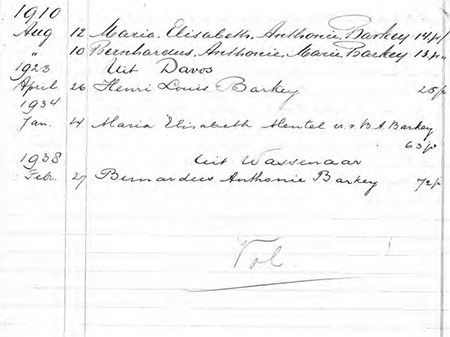 1910
Aug 12 Maria Elisabeth Anthonie Barkey 14 j
" 10 Bernhardus Anthonie Marie Barkey 13 j
1923 Uit Davos
April 26 Henri Louis Barkey 25 j
1934
Jan. 4 Maria Elisabeth Mentel v. B A Barkey
63 j
1938 Uit Wassenaar
Febr. 27 Bernardus Anthonie Barkey 72 j
Vol